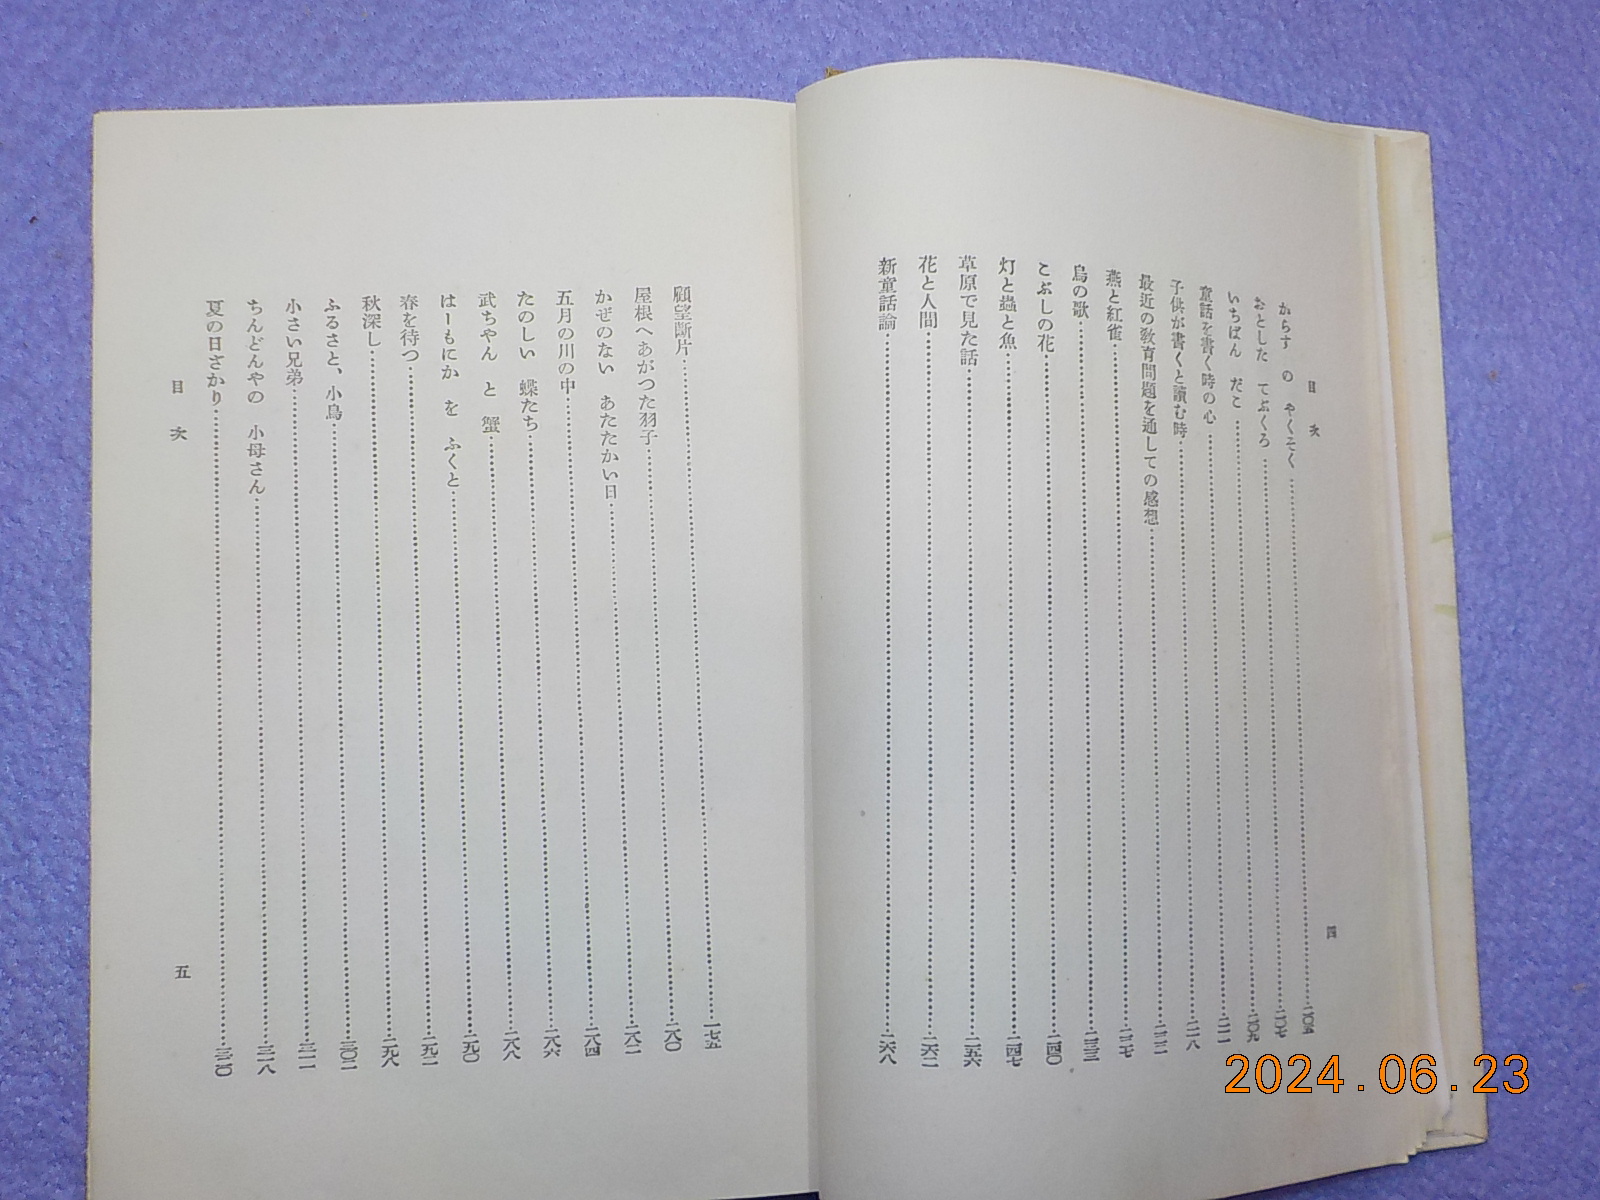 目次
四
からす の やくそく……二〇四
おとした てぶくろ……二〇七
いちばん だこ……二〇九
童話を書く時の心……二一一
子供が書くと讀む時……二一八
最近の敎育問題を通しての感想……二二二
燕と紅雀……二二七
烏の歌……二三三
こぶしの花……二四〇
灯と蟲と魚……二四七
草原で見た話……二五六
花と人間……二六二
新童話論……二六八
顧望斷片……二七五
屋根へあがつた羽子……二八〇
かぜのない あたたかい日……二八二
五月の川の中……二八四
たのしい 蝶たち……二八六
武ちやん と 蟹……二八八
はーもにか を ふくと……二九〇
春を待つ……二九二
秋深し……二九八
ふるさと、小鳥……三〇二
小さい兄弟……三一一
ちんどんやの 小母さん……三一八
夏の日さかり……三二〇
目次
五
2024.06.23